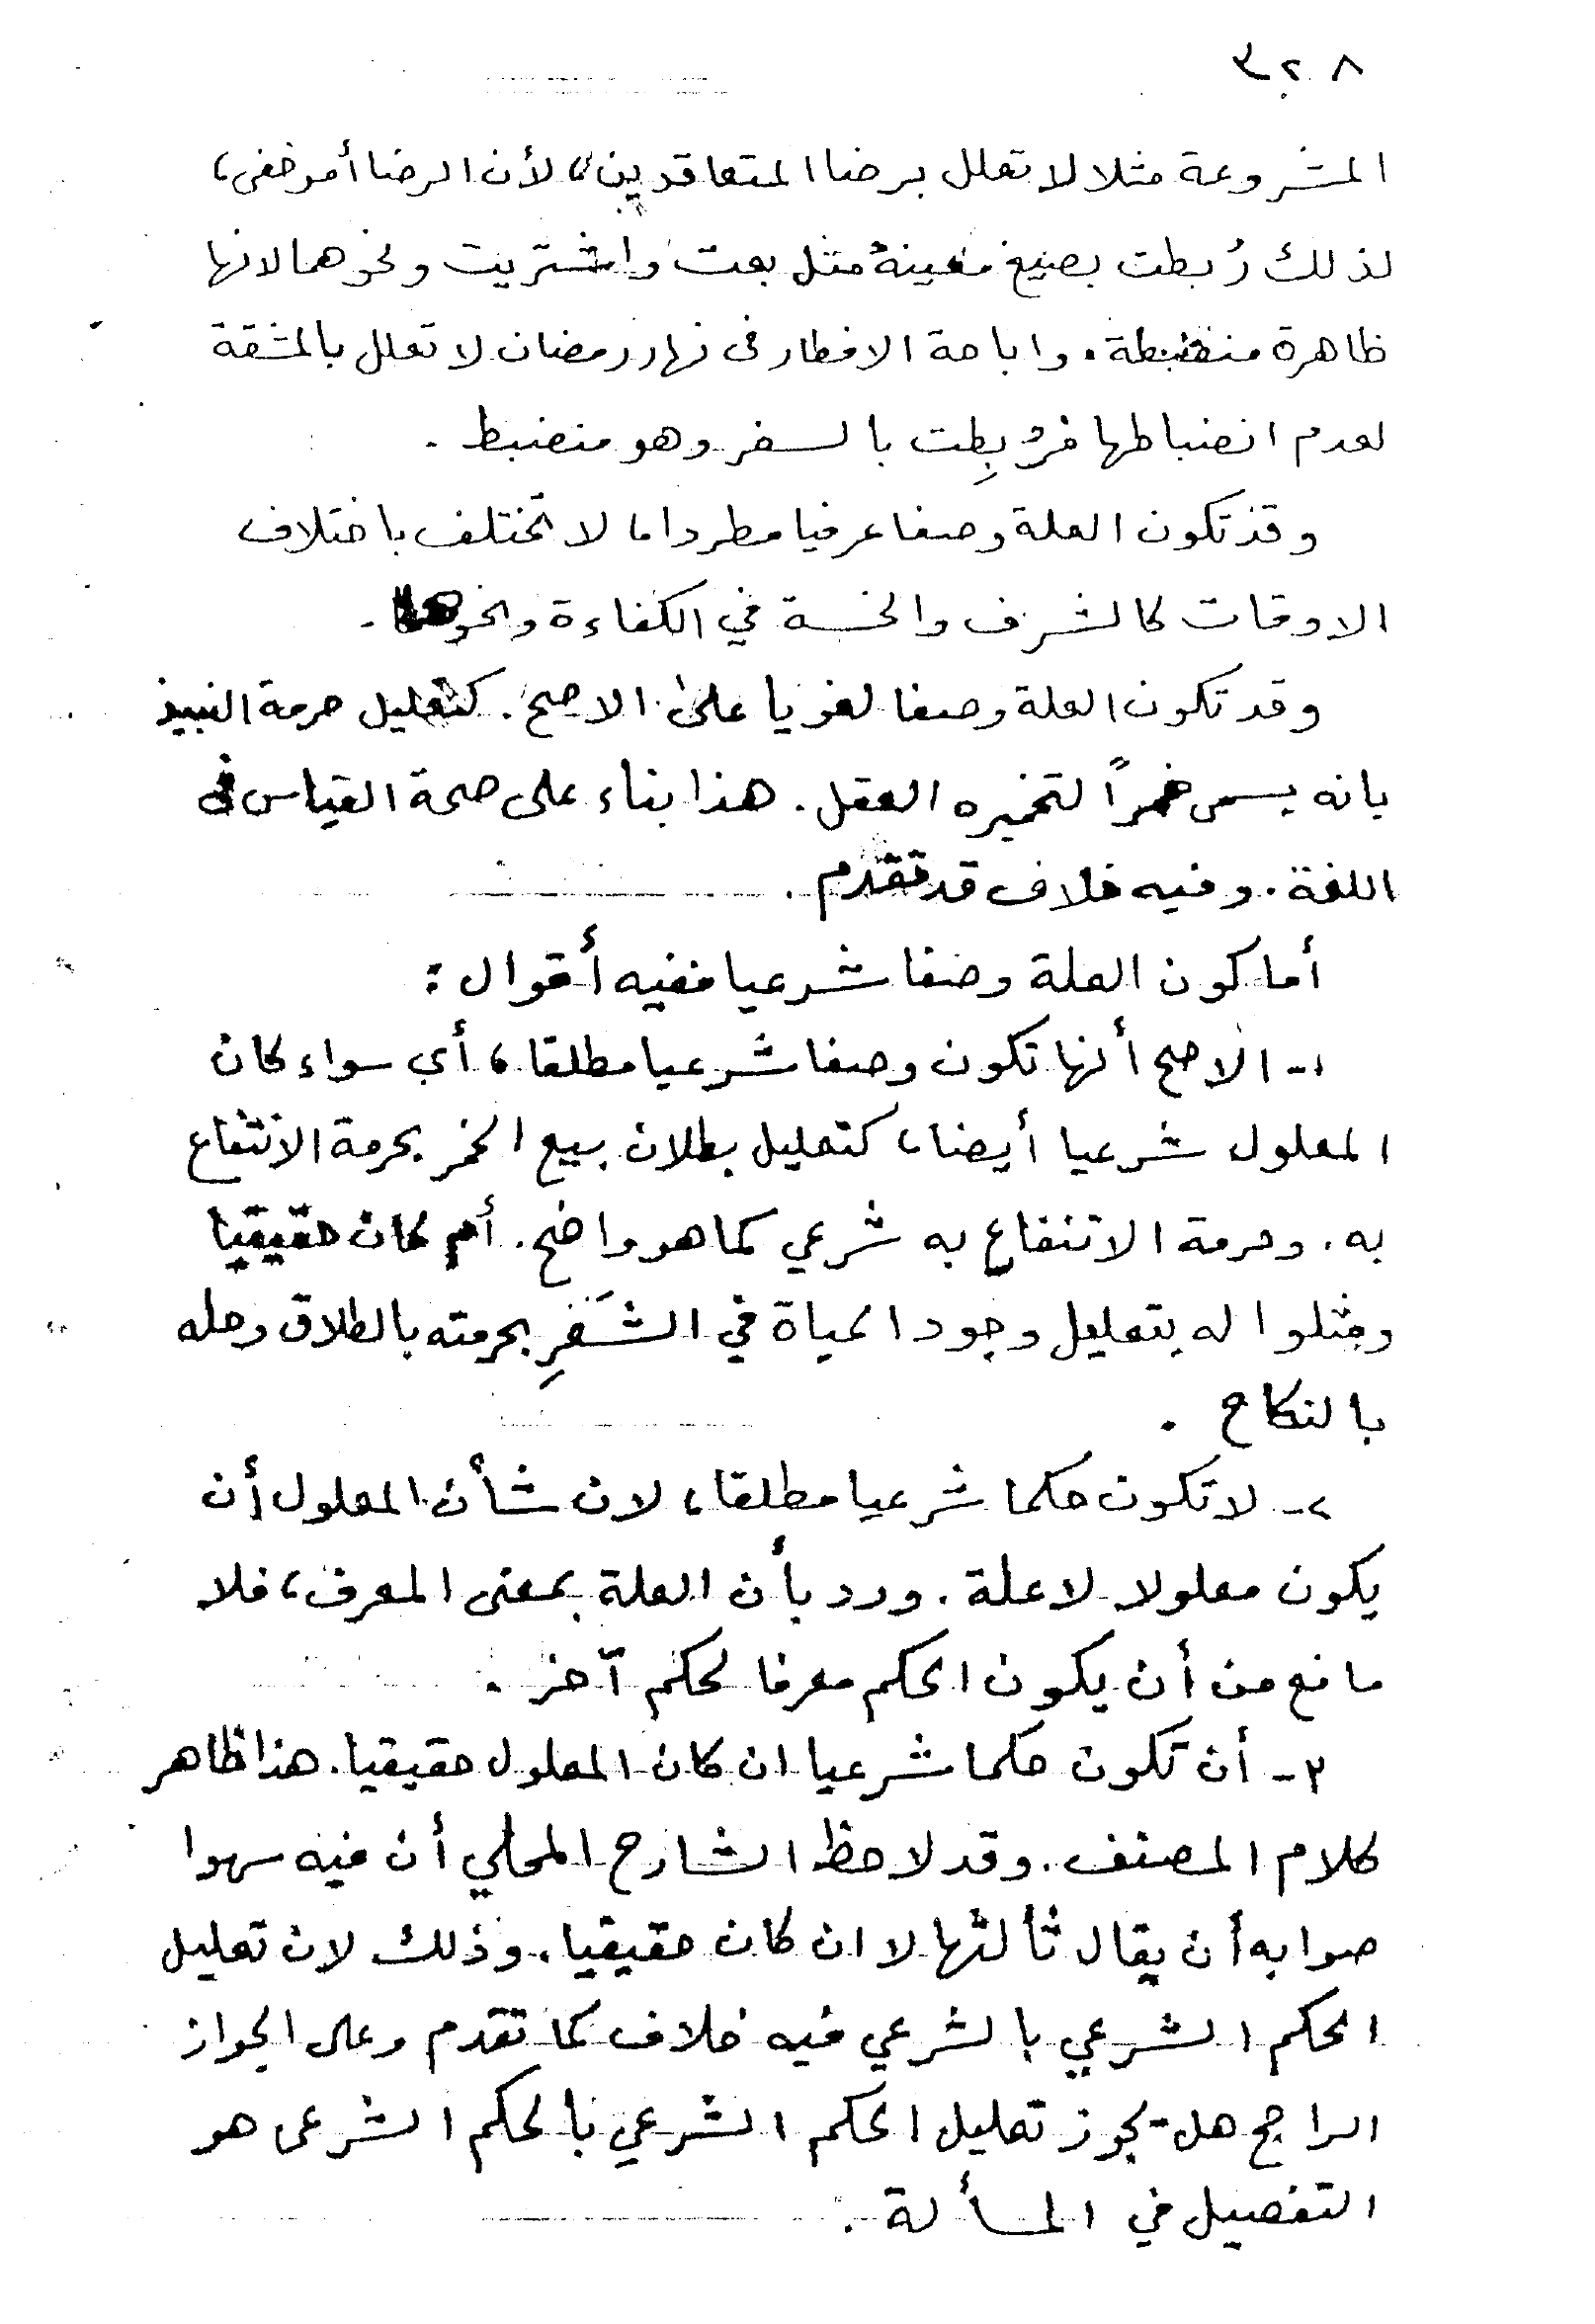 ٣٢٨
المشروعة مثلا لا تعلل برضا المتعاقدين، لأن الرضا أمر خفى،
لذلك رُبطت بصيغ معينة مثل بعت واشتريت ونحوهما لانها
ظاهرة منضبطة. واباحة الافطار فى نهار رمضان لا تعلل بالمشقة
لعدم انضباطها فرُبِطت بالسفر وهو منضبط.
وقد تكون العلة وصفا عرفيا مطردا، لا تختلف باختلاف
الاوقات كالشرف والخسة في الكفاءة ونحوها.
وقد تكون العلة وصفا لغويا على الاصح. كتعليل حرمة النبيذ
بانه يسمى خمراً لتخميره العقل. هذا بناء على صحة القياس فى
اللغة. وفيه خلاف قد تقدم.
أما كون العلة وصفا شرعيا ففيه أقوال:
١- الاصح أنها تكون وصفا شرعيا مطلقا، أي سواء كان
المعلول شرعيا أيضا، كتعليل بطلان بيع الخمر بحرمة الانتفاع
به. وحرمة الانتفاع به شرعي كما هو واضح. أم كان حقيقيا
ومثلوا له بتعليل وجود الحياة في الشَعَرِ بحرمته بالطلاق وحله
بالنكاح.
٢- لا تكون حكما شرعيا مطلقا، لان شأن المعلول أن
يكون معلولا لا علة. ورد بأن العلة بمعنى المعرف، فلا
مانع من أن يكون الحكم معرفا لحكم آخر.
٣- أن تكون حكما شرعيا ان كان المعلول حقيقيا. هذا ظاهر
كلام المصنف. وقد لاحظ الشارح المحلي أن فيه سهوا
صوابه أن يقال ثالثها لا ان كان حقيقيا. وذلك لان تعليل
الحكم الشرعي بالشرعي فيه خلاف كما تقدم وعلى الجواز
الراجح هل يجوز تعليل الحكم الشرعي بالحكم الشرعى هو
التفصيل في المسألة.